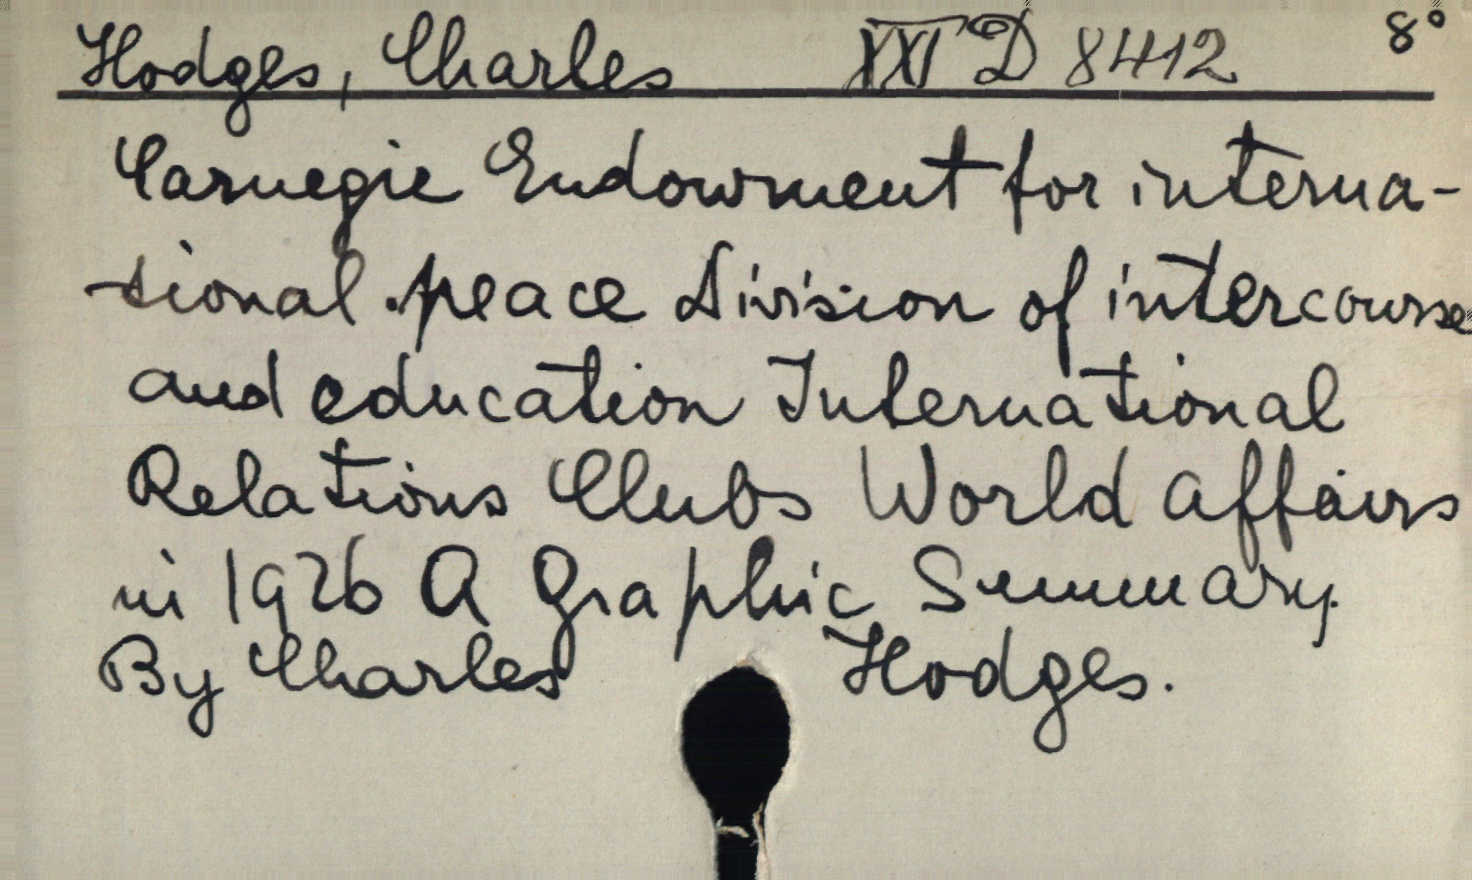 Hodges, Charles XXI D 8412 8°
Carnegie Endowment for interna-
-tional peace Division of intercourse
and education International
Relations Clubs World affairs
in 1926 A Graphic Summary.
By Charles Hodges.